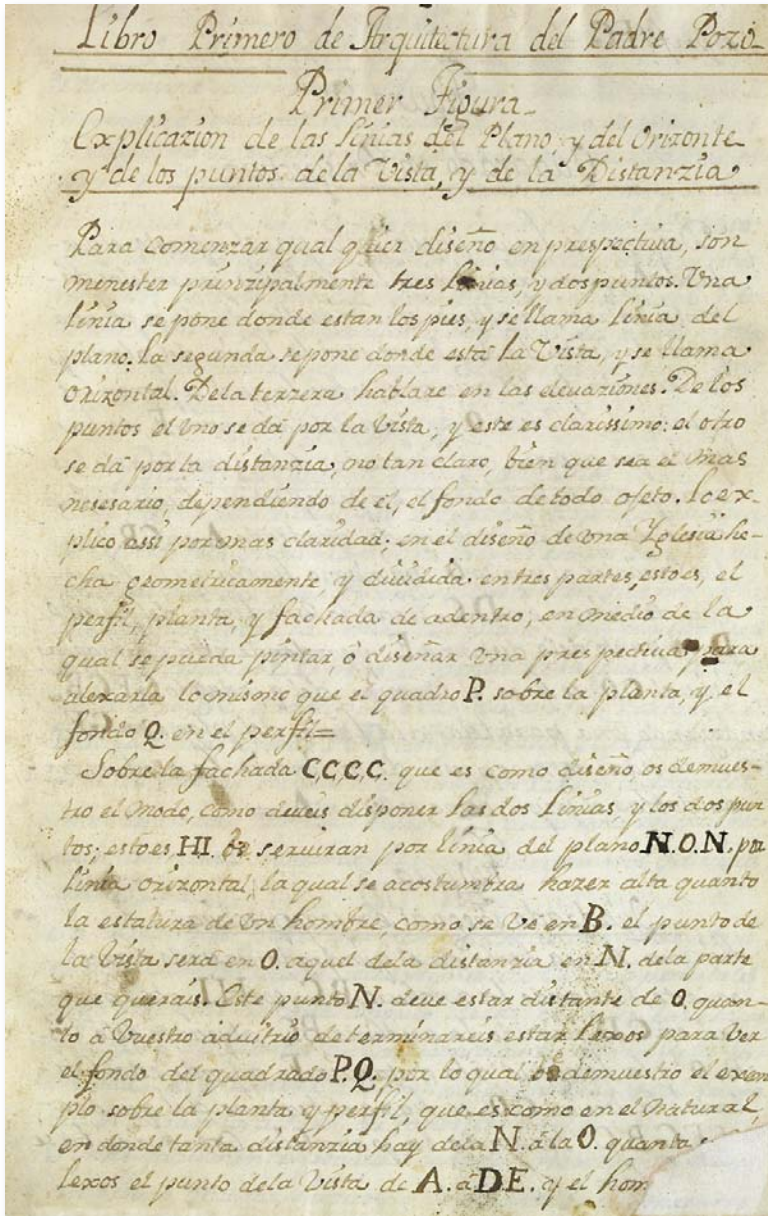 Libro Primero de Arquitectura del Padre Pozo
Primer Figura
Explicazion de las linias del Plano, y del Orizonte
y de los puntos de la Vista, y de la Distanzia
Para comenzar qual quier diseño en prespectiva, son
menester prinzipalmente tres linias, y dos puntos. Una
linia se pone donde estan los pies, y se llama linia del
plano. La segunda se pone donde está la Vista, y se llama
orizontal. De la terzera hablare en las elevaziones. De los
puntos el uno se dá por la Vista, y este es clarissimo: el otro
se dá por la distanzia, no tan claro, bien que sea el mas
nesesario, dependiendo de el, el fondo de todo ojeto. Lo ex-
plico assi por mas claridad; en el diseño de una Yglesia he-
cha geometricamente y dividida en tres partes, esto es, el
perfil, planta, y fachada de adentro, en medio de la
qual se pueda pintar, ó diseñar una prespectiva para
alexarla lo mismo que el quadro P. sobre la planta, y, el
fondo Q. en el perfil=
Sobre la fachada C,C,C,C. que es como diseño, os demues-
tro el modo, como deveis disponer las dos linias, y los dos pun-
tos; esto es HI. os serviran por linia del plano N.O.N. por
linia orizontal, la qual se acostumbra hazer alta quanto
la estatura de un hombre, como se ve en B. el punto de
la Vista será en O. aquel de la distanzia en N. de la parte
que querais. Este punto N. deve estar distante de O. quan-
to á vuestro advitrio determinareis estar lexos para ver
el fondo del quadrado P.Q. por lo qual os demuestro el exem
plo sobre la planta y perfil, que es como en el natural,
en donde tanta distanzia hay de la N. á la O. quanta
lexos el punto de la Vista de A. a D.E. y el hom